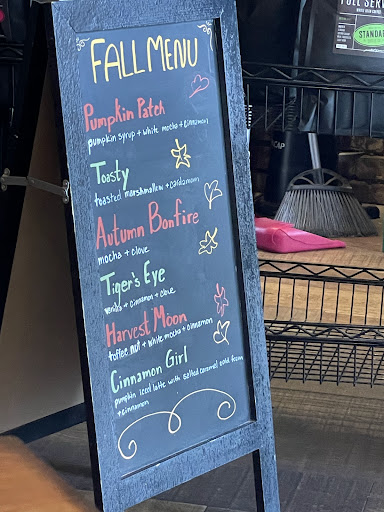 FALL MENU
Pumpkin Patch
pumpkin syrup + white mocha + cinnamon
Toasty
toasted marshmallow + cardamom
Autumn Bonfire
mocha + clove
Tiger's Eye
vanilla + cinnamon + clove
Harvest Moon
toffee nut + white mocha + cinnamon
Cinnamon Girl
pumpkin iced latte with salted caramel cold foam
+ cinnamon
FULL
STANDA
CAP